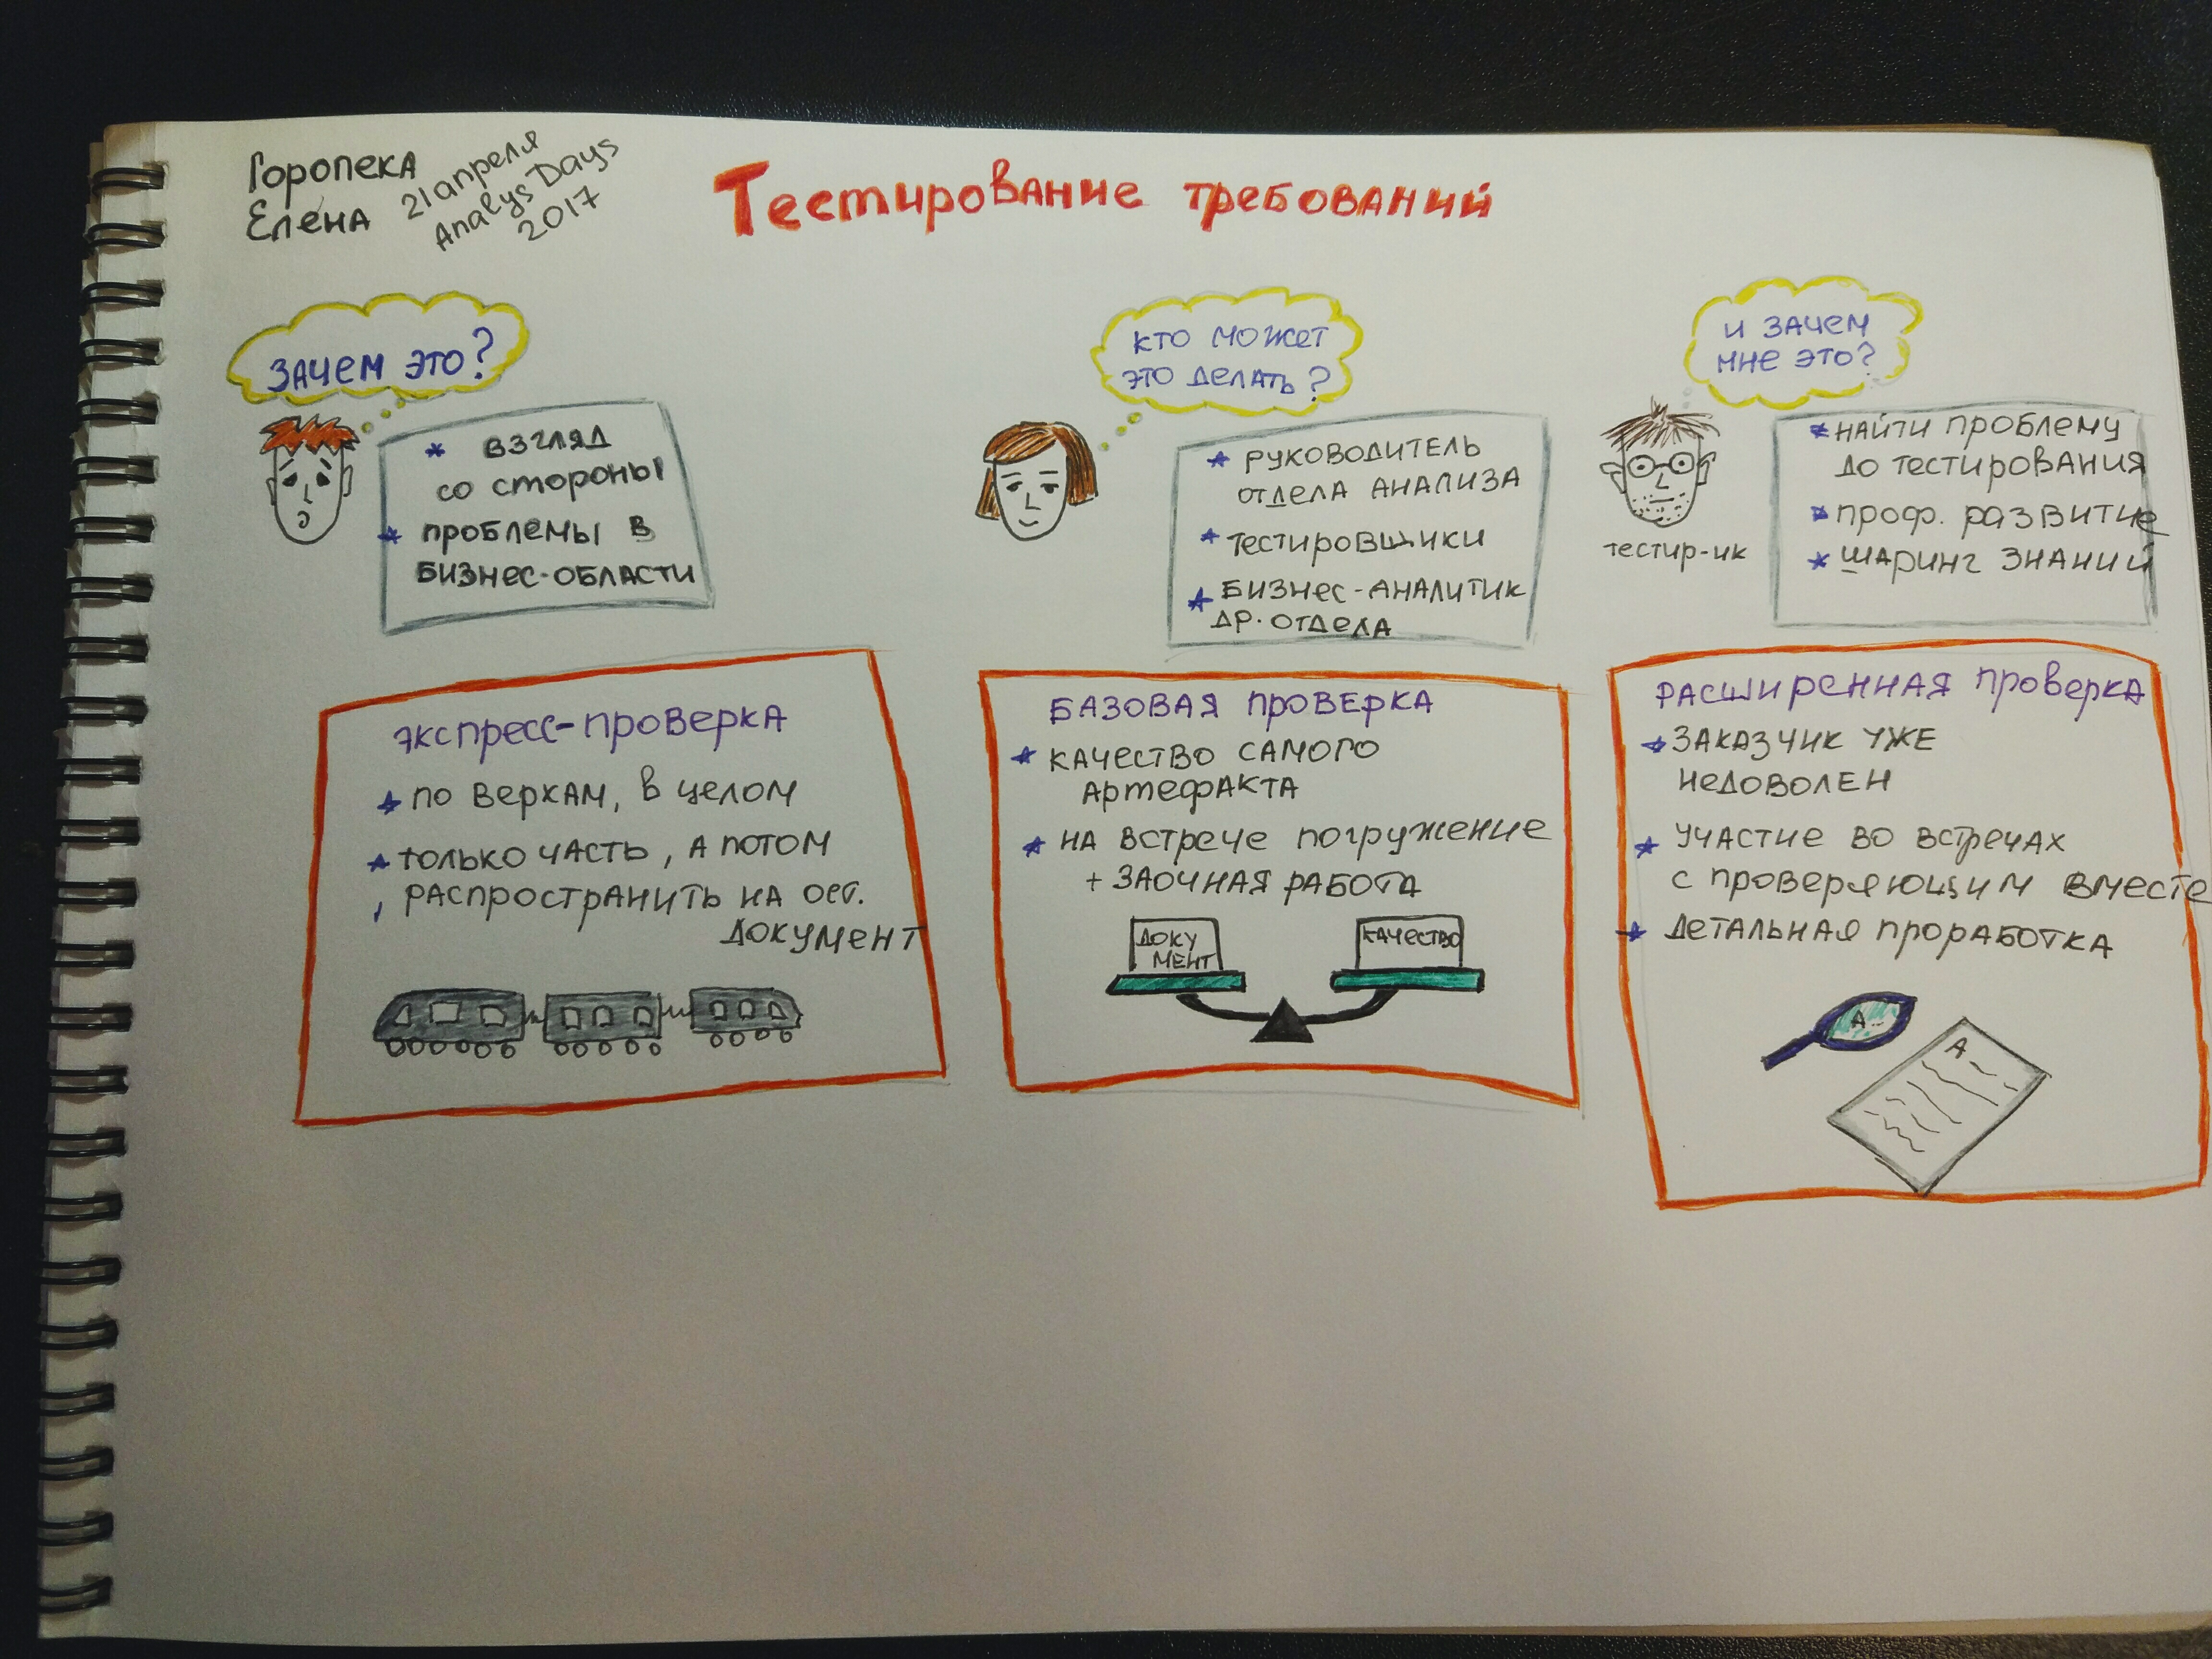 Горопека
Елена
21 апреля
Analys Days
2017
Тестирование требований
Зачем это?
* взгляд
со стороны
* проблемы в
бизнес-области
кто может
это делать?
* руководитель
отдела анализа
* тестировщики
* бизнес-аналитик
др. отдела
и зачем
мне это?
тестир-ик
* найти проблему
до тестирования
* проф. развитие
* шаринг знаний
экспресс-проверка
* по верхам, в целом
* только часть, а потом
распространить на ост.
документ
Базовая проверка
* качество самого
артефакта
* на встрече погружение
+ заочная работа
доку
мент
качество
Расширенная проверка
* заказчик уже
недоволен
* участие во встречах
с проверяющим вместе
* детальная проработка
А
А